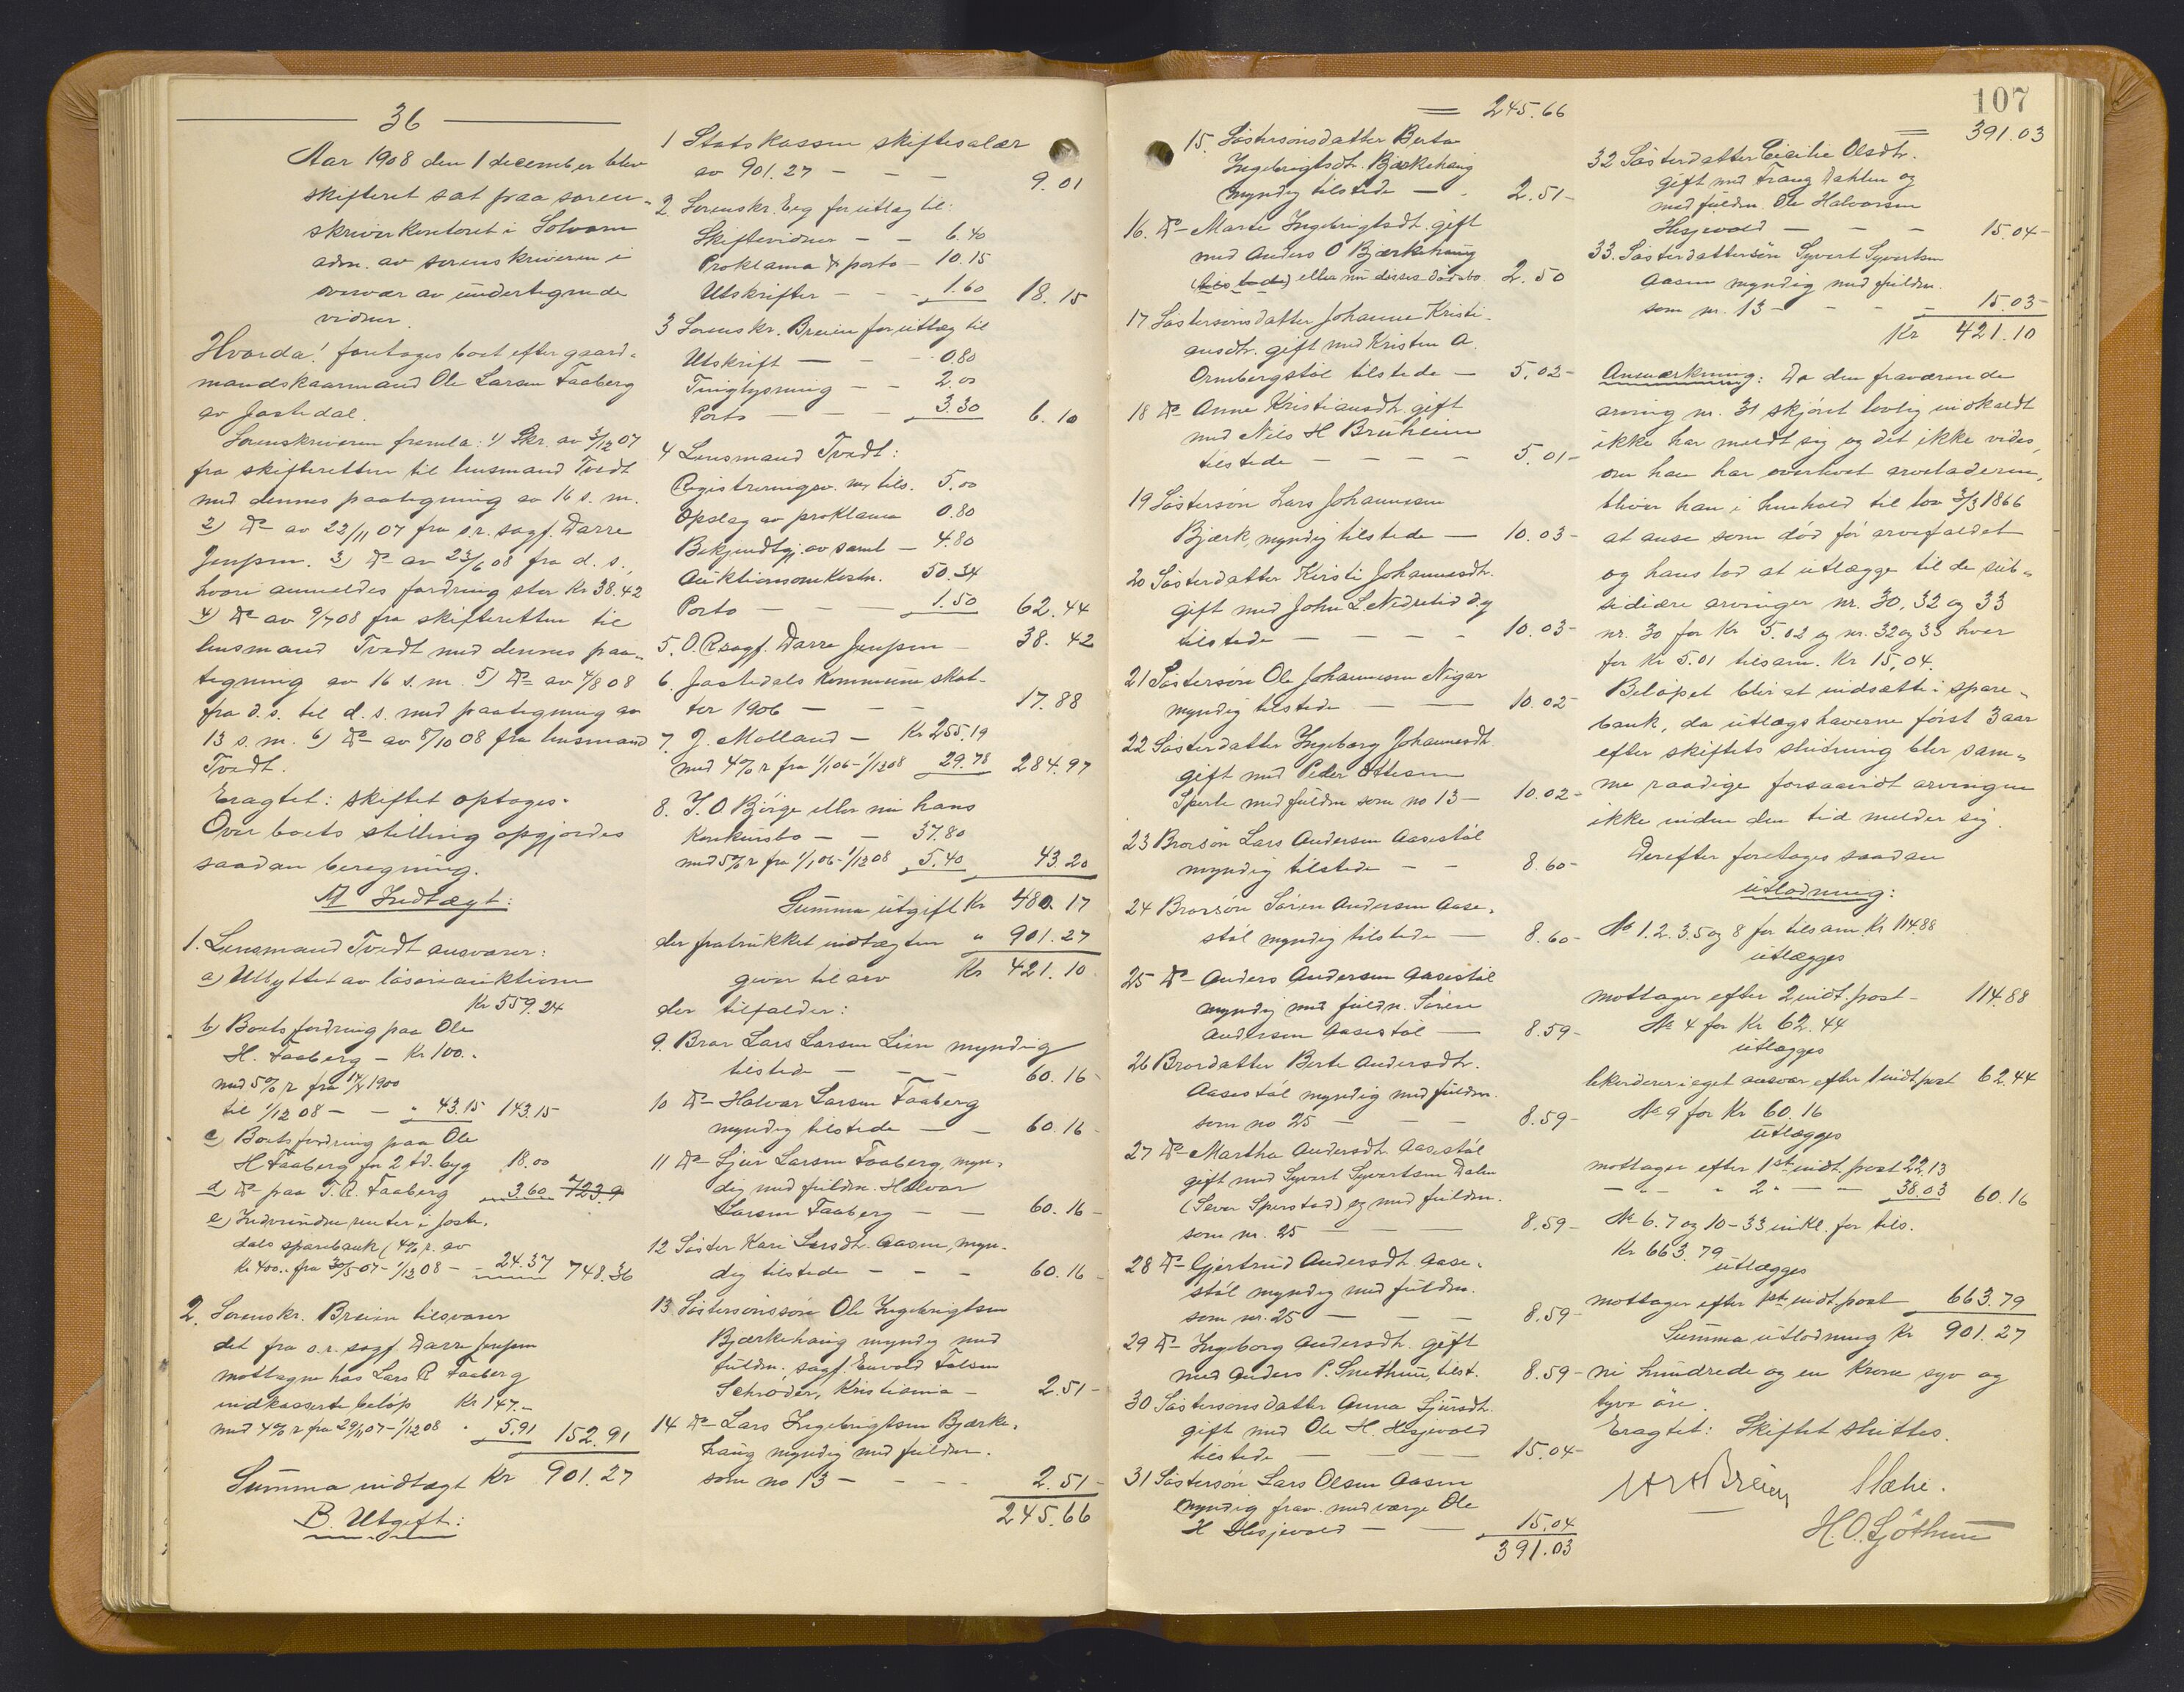 36
Aar 1908 den 1 december blev
skifteret sat paa soren-
skriverkontoret i Solvorn
adm. av sorenskriveren i
overvær av undertegnede
vidner.
Hvorda! foretoges boet efter gaard-
mandskaarmand Ole Larsen Faaberg
av Jostedal.
Sorenskriveren fremla: 1) Skr. av 3/12 07
fra skifteretten til lensmand Tvedt
med dennes paategning av 16 s. m.
2) Do av 22/11 07 fra o.r. sagf. Darre
Jenssen. 3) Do av 23/6 08 fra d. s.,
hvori anmeldes fordring stor Kr 38.42
4) Do av 9/7 08 fra skifteretten til
lensmand Tvedt med dennes paa-
tegning av 16 s. m. 5) Do av 4/8 08
fra d. s. til d. s. med paategning av
13 s. m. 6) Do av 8/10 08 fra lensmand
Tvedt.
Eragtet: skiftet optages.
Over boets stilling opgjordes
saadan beregning.
A Indtægt:
1. Lensmand Tvedt ansvarer:
a) Utbyttet av løsøreauktionen
Kr 559.24
b) Boets fordring paa Ole
H. Faaberg - Kr 100.-
med 5% r fra 14/4 1900
til 1/12 08 - - " 43.15 143.15
c) Boets fordring paa Ole
H Faaberg for 2 td. byg 18.00
d) Do paa T. R. Faaberg 3.60 723.9
e) Indvundne renter i Joste-
dals sparebank (4% r. av
Kr 400.- fra 30/5-07 - 1/12 08 - 24.37 748.36
2. Sorenskr. Breien tilsvarer
det fra o.r. sagf. Darre Jenssen
mottagne hos Lars R Faaberg
indkasserte beløp Kr 147.-
med 4% r fra 29/11 07 - 1/12 08 " 5.91 152.91
Summa indtægt Kr 901.27
B. Utgift:
1 Statskassen skiftesalær
av 901.27 - - - 9.01
2. Sorenskr. Eeg for utlæg til:
Skiftevidner - - 6.40
Proklama & porto - 10.15
Utskrifter - - - 1.60 18.15
3 Sorenskr. Breien for utlæg til
Utskrift - - - 0.80
Tinglysning - - 2.00
Porto - - - 3.30 6.10
4 Lensmand Tvedt:
Registreringsv. m. tils. 5.00
Opslag av proklama 0.80
Bekjendtgj. av saml - 4.80
Auktionsomkostn. 50.34
Porto - - - 1.50 62.44
5. O.R.sagf. Darre Jenssen - 38.42
6. Jostedals kommune skat-
ter 1906 - - - 17.88
7. J. Molland - Kr 255.19
med 4% r fra 1/1 06 - 1/12 08 29.78 284.97
8. J. O Børge eller nu hans
konkursbo - - 37.80
med 5% r fra 1/1 06 - 1/12 08 5.40 43.20
Summa utgift Kr 480.17
der fratrukket indtægten " 901.27
giver til arv Kr 421.10
der tilfalder:
9. Bror Lars Larsen Lien myndig
tilstede - - - 60.16 -
10 Do - Halvar Larsen Faaberg
myndig tilstede - - 60.16 -
11 Do - Sjur Larsen Faaberg, myn-
dig med fuldm. Halvar
Larsen Faaberg - - 60.16 -
12 Søster Kari Larsdt. Aasen, myn-
dig tilstede - - - 60.16 -
13 Søstersønssøn Ole Ingebrigtsen
Bjærkehaug myndig med
fuldm. sagf. Euvold Falsen
Schrøder, Kristiania - 2.51 -
14 Do - Lars Ingebrigtsen Bjærke-
haug myndig med fuldm.
som no 13 - - - 2.51 -
245.66
107
= 245.66
15. Søstersønsdatter Berta
Ingebrigtsdt. Bjærkehaug
myndig tilstede - - 2.51 -
16. Do - Marte Ingebrigtsdt. gift
med Anders O Bjærkehaug
(tilstede) eller nu disses dødsbo. 2.50
17 Søstersønsdatter Johanne Kristi-
ansdt. gift med Kristen A.
Ormbergstøl tilstede - 5.02 -
18 Do Anne Kristiansdt. gift
med Nils H Bruheim
tilstede - - - - 5.01 -
19 Søstersøn Lars Johannesen
Bjærk, myndig tilstede - 10.03 -
20 Søsterdatter Kirsti Johannesdt.
gift med John L Nedrelid d.y
tilstede - - - - 10.03 -
21 Søstersøn Ole Johannesen Nigar
myndig tilstede - - 10.02 -
22 Søsterdatter Ingeborg Johannesdt
gift med Peder Ottesen
Sperle med fuldm som no 13 - 10.02 -
23 Brorsøn Lars Andersen Aasestøl
myndig tilstede - - 8.60 -
24 Brorsøn Søren Andersen Aase-
støl myndig tilstede - 8.60 -
25 Do - Anders Andersen Aasestøl
myndig med fuldm. Søren
Andersen Aasestøl - 8.59 -
26 Brordatter Berte Andersdt.
Aasestøl myndig med fuldm.
som no 25 - - - 8.59 -
27 Do - Martha Andersdt. Aasestøl
gift med Syvert Syvertsen Dalen
(Sever Sperstad) og med fuldm.
som nr. 25 - - 8.59 -
28 Do - Gjertrud Andersdt. Aase-
støl myndig med fuldm.
som nr. 25 - - - 8.59 -
29 Do - Ingeborg Andersdt. gift
med Anders P. Snethun, tilst. 8.59 -
30 Søstersønsdatter Anna Sjursdt.
gift med Ole H. Hesjevold
tilstede - - - 15.04 -
31 Søstersøn Lars Olsen Aasen
myndig frav. med værge Ole
H Hesjevold - - 15.04
391.03
= 391.03
32 Søsterdatter Cicilie Olsdt.
gift med Franz Dahlen og
med fuldm. Ole Halvorsen
Hesjevold - - - 15.04 -
33. Søsterdattersøn Syvert Syvertsen
Aasen myndig med fuldm.
som nr. 13 - - - - 15.03 -
Kr 421.10
Anmerkning: Da den fraværende
arving nr. 31 skjønt lovlig indkaldt
ikke har meldt sig og det ikke vides,
om han har overlevet arveladeren,
bliver han i henhold til lov 3/3 1866
at anse som død før arvefaldet
og hans lod at utlægge til de sub-
sidiære arvinger nr. 30, 32 og 33
nr. 30 for Kr 5.02 og nr. 32 og 33 hver
for Kr 5.01 tilsam. Kr 15,04.
Beløpet blir at indsætte i spare-
bank, da utlægshaverne først 3 aar
efter skiftets slutning blir sam-
me raadige forsaavidt arvingen
ikke inden den tid melder sig.
Derefter foretoges saadan
utlodning:
No 1. 2. 3. 5 og 8 for tilsam Kr 114.88
utlægges
mottager efter 2 indt. post - 114.88
No 4 for Kr 62.44
utlægges
likviderer i eget ansvar efter 1 indt post 62.44
No 9 for Kr 60.16
utlægges
mottager efter 1ste indt. post 22.13
- " - " 2 " - - 38.03 60.16
No 6. 7 og 10-33 inkl. for tils.
Kr 663.79
utlægges
mottager efter 1ste indt post 663.79
Summa utlodning Kr 901.27
ni hundrede og en krone syv og
tyve øre.
Eragtet: Skiftet sluttes.
Breien
H. O. Sjøthun